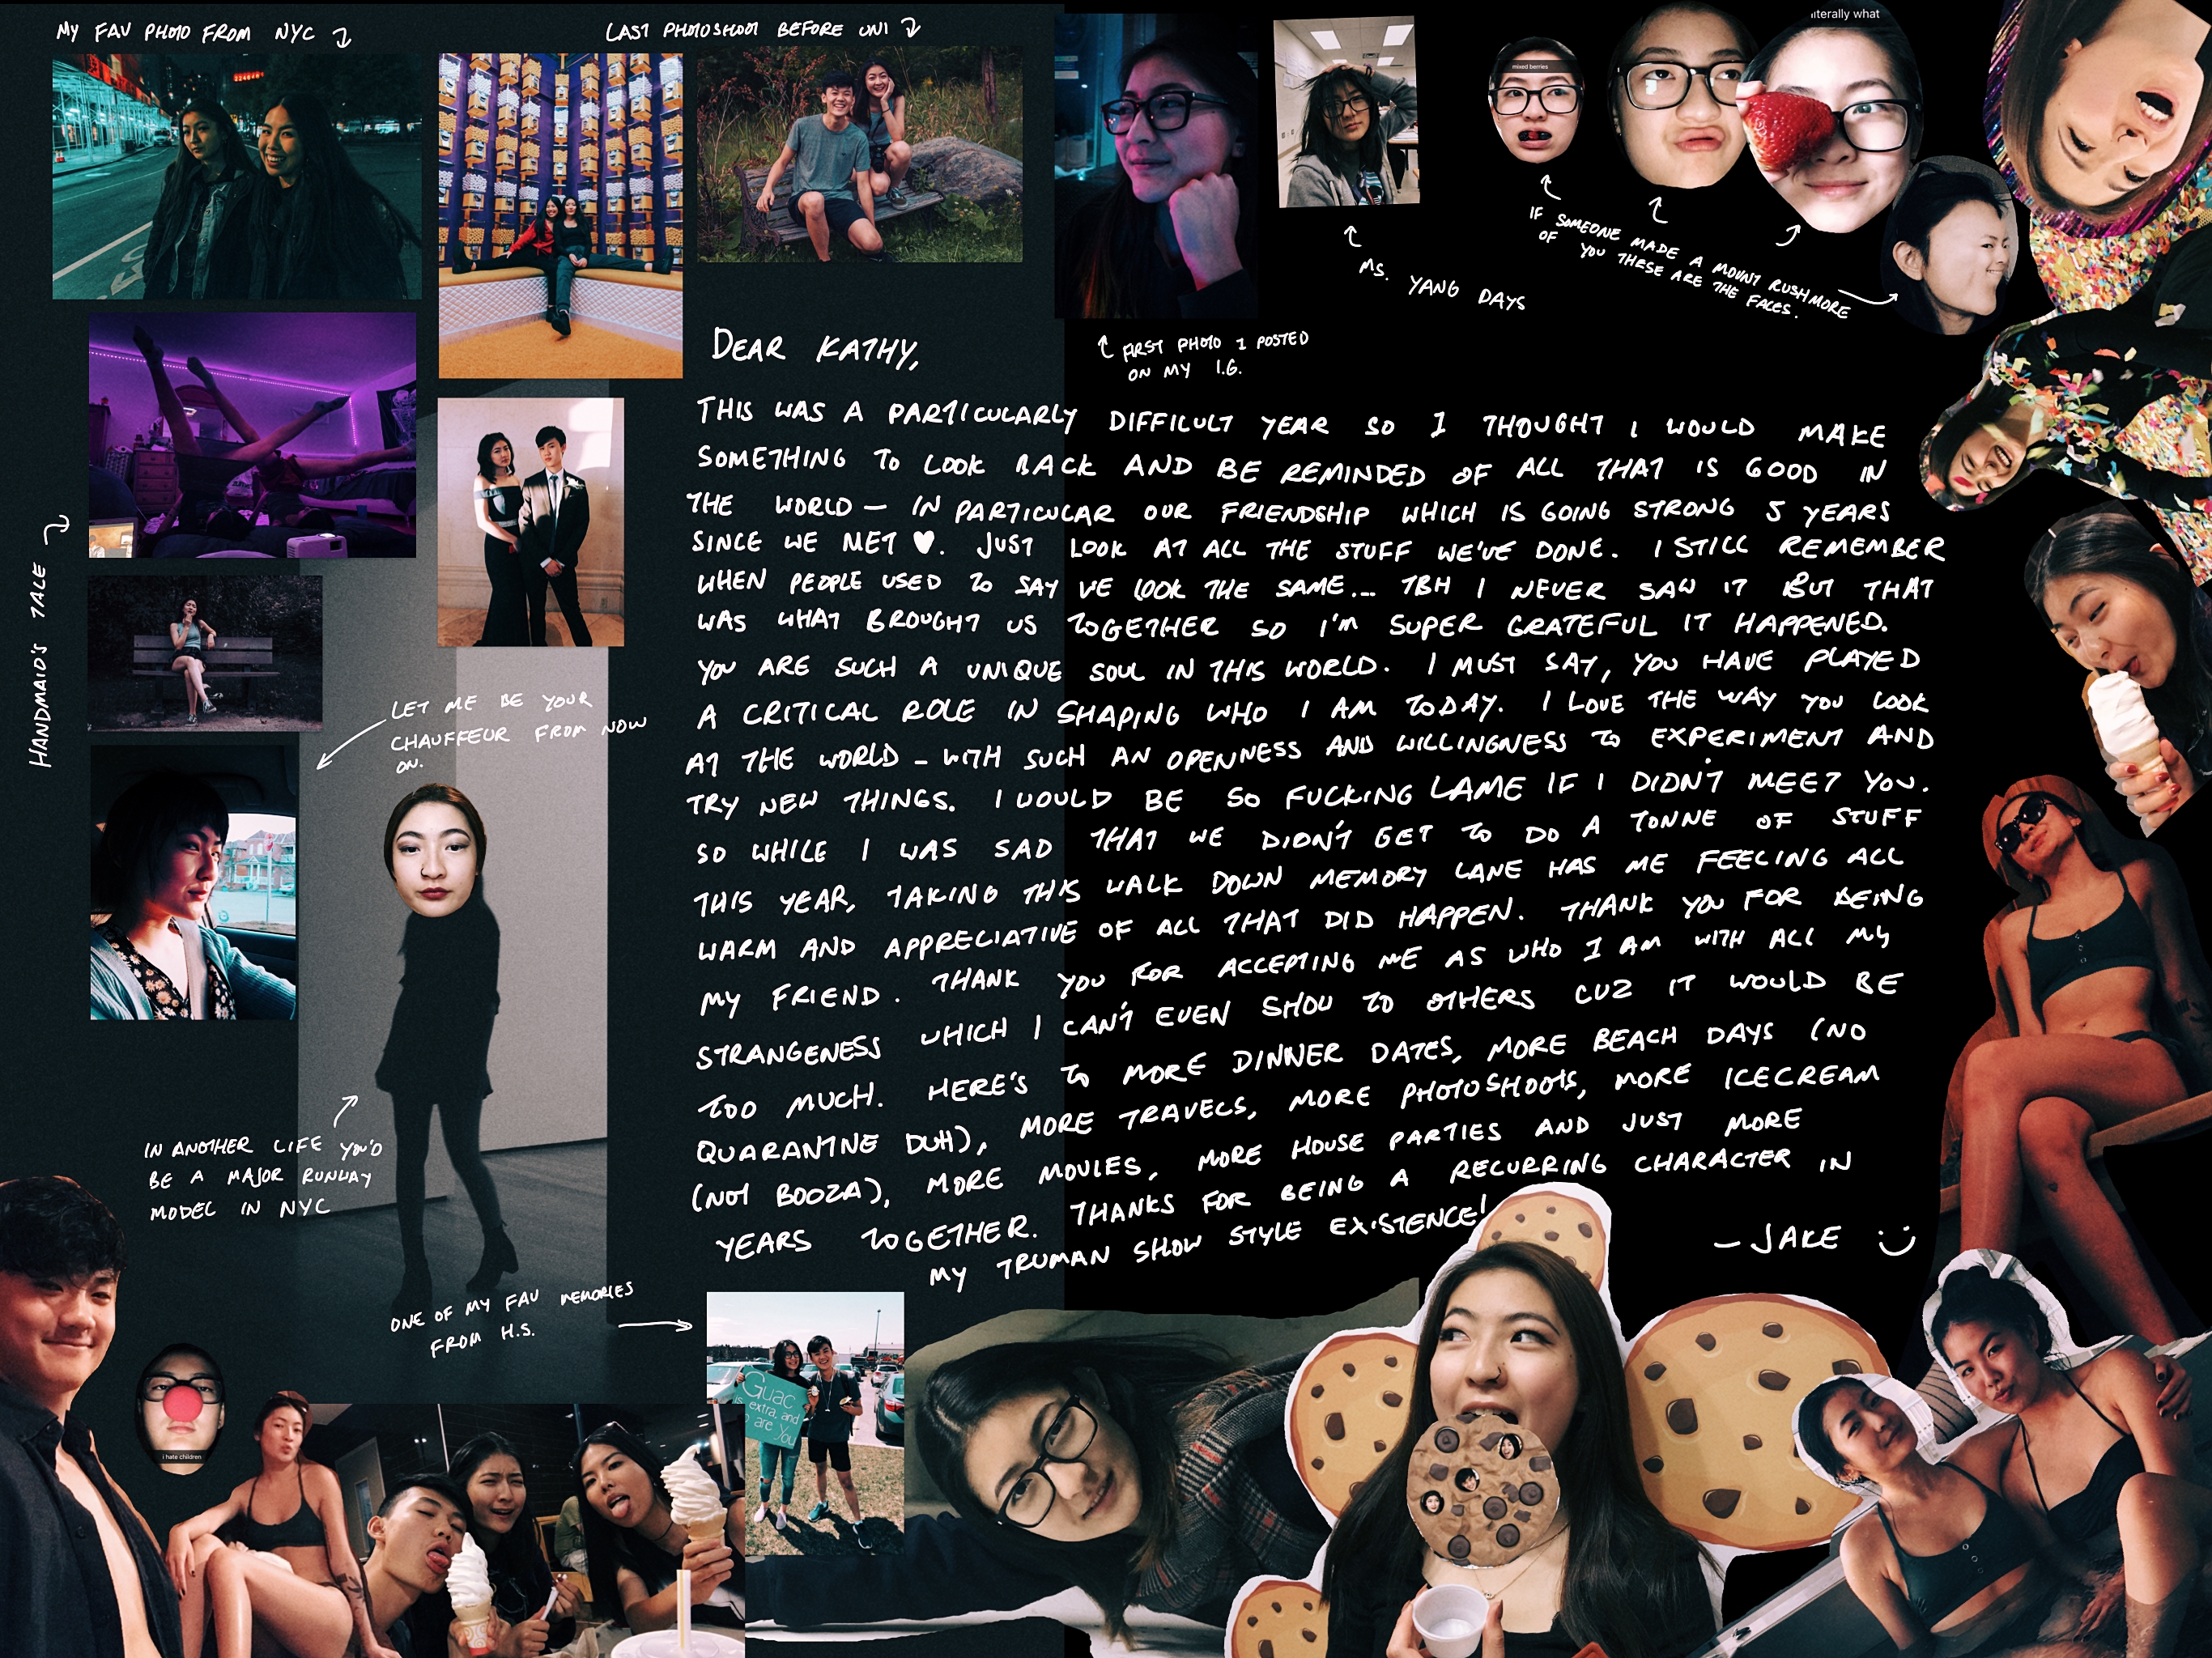 MY FAV PHOTO FROM NYC
LAST PHOTOSHOOT BEFORE UNI
literally what
mixed berries
IF SOMEONE MADE A MOUNT RUSHMORE
OF YOU THESE ARE THE FACES.
MS. YANG DAYS
FIRST PHOTO I POSTED
ON MY I.G.
HANDMAID'S TALE
LET ME BE YOUR
CHAUFFEUR FROM NOW
ON.
DEAR KATHY,
THIS WAS A PARTICULARLY DIFFICULT YEAR SO I THOUGHT I WOULD MAKE
SOMETHING TO LOOK BACK AND BE REMINDED OF ALL THAT IS GOOD IN
THE WORLD — IN PARTICULAR OUR FRIENDSHIP WHICH IS GOING STRONG 5 YEARS
SINCE WE MET ♥. JUST LOOK AT ALL THE STUFF WE'VE DONE. I STILL REMEMBER
WHEN PEOPLE USED TO SAY WE LOOK THE SAME... TBH I NEVER SAW IT BUT THAT
WAS WHAT BROUGHT US TOGETHER SO I'M SUPER GRATEFUL IT HAPPENED.
YOU ARE SUCH A UNIQUE SOUL IN THIS WORLD. I MUST SAY, YOU HAVE PLAYED
A CRITICAL ROLE IN SHAPING WHO I AM TODAY. I LOVE THE WAY YOU LOOK
AT THE WORLD - WITH SUCH AN OPENNESS AND WILLINGNESS TO EXPERIMENT AND
TRY NEW THINGS. I WOULD BE SO FUCKING LAME IF I DIDN'T MEET YOU.
SO WHILE I WAS SAD THAT WE DIDN'T GET TO DO A TONNE OF STUFF
THIS YEAR, TAKING THIS WALK DOWN MEMORY LANE HAS ME FEELING ALL
WARM AND APPRECIATIVE OF ALL THAT DID HAPPEN. THANK YOU FOR BEING
MY FRIEND. THANK YOU FOR ACCEPTING ME AS WHO I AM WITH ALL MY
STRANGENESS WHICH I CAN'T EVEN SHOW TO OTHERS CUZ IT WOULD BE
TOO MUCH. HERE'S TO MORE DINNER DATES, MORE BEACH DAYS (NO
QUARANTINE DUH), MORE TRAVELS, MORE PHOTOSHOOTS, MORE ICECREAM
(NOT BOOZA), MORE MOVIES, MORE HOUSE PARTIES AND JUST MORE
YEARS TOGETHER. THANKS FOR BEING A RECURRING CHARACTER IN
MY TRUMAN SHOW STYLE EXISTENCE!
- JAKE
IN ANOTHER LIFE YOU'D
BE A MAJOR RUNWAY
MODEL IN NYC
ONE OF MY FAV MEMORIES
FROM H.S.
i hate children
Guac
is extra, and
so are you